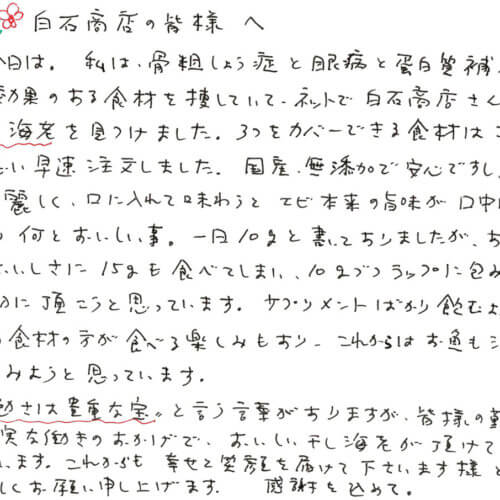 白石商店の皆様へ
今日は。私は、骨粗しょう症と眼病と蛋白質補
効果のある食材を捜していて、ネットで白石商店さん
海老を見つけました。3つをカバーできる食材は
早速注文しました。国産、無添加で安心ですし
麗しく、口に入れて味わうとエビ本来の旨味が口中に
何とおいしい事。一日10gと書いておりましたが、
おいしさに15gも食べてしまい、10gづつラップに包み
に頂こうと思っています。サプリメントばかり飲むよ
食材の方が食べる楽しみもあり、これからはお魚も
みようと思っています。
勤さは貴重な宝〟と言う言葉がありますが、皆様の勤
実な働きのおかげで、おいしい干し海老が頂けて
います。これからも幸せと笑顔を届けて下さいます様と
しくお願い申し上げます。 感謝を込めて。